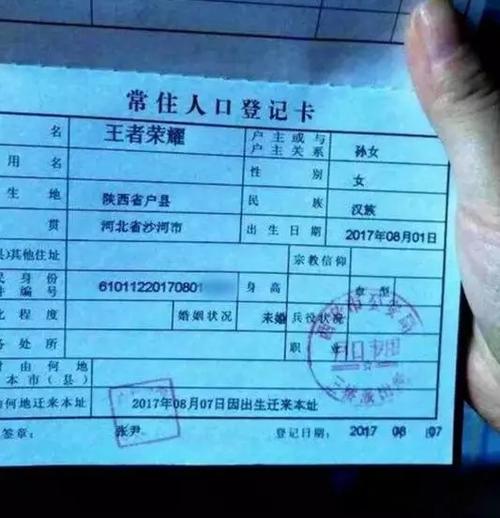 常住人口登记卡
名 王者荣耀 户主或与户主关系 孙女
用名 性别 女
生地 陕西省户县 民族 汉族
贯 河北省沙河市 出生日期 2017年08月01日
县)其他住址 宗教信仰
民身份件编号 61011220170801 身高 血型
化程度 婚姻状况 未婚 兵役状况
务处所 职业
时由何地本市(县)
由何地迁来本址 2017年08月07日因出生迁来本址
签章: 张尹 登记日期: 2017 08 07